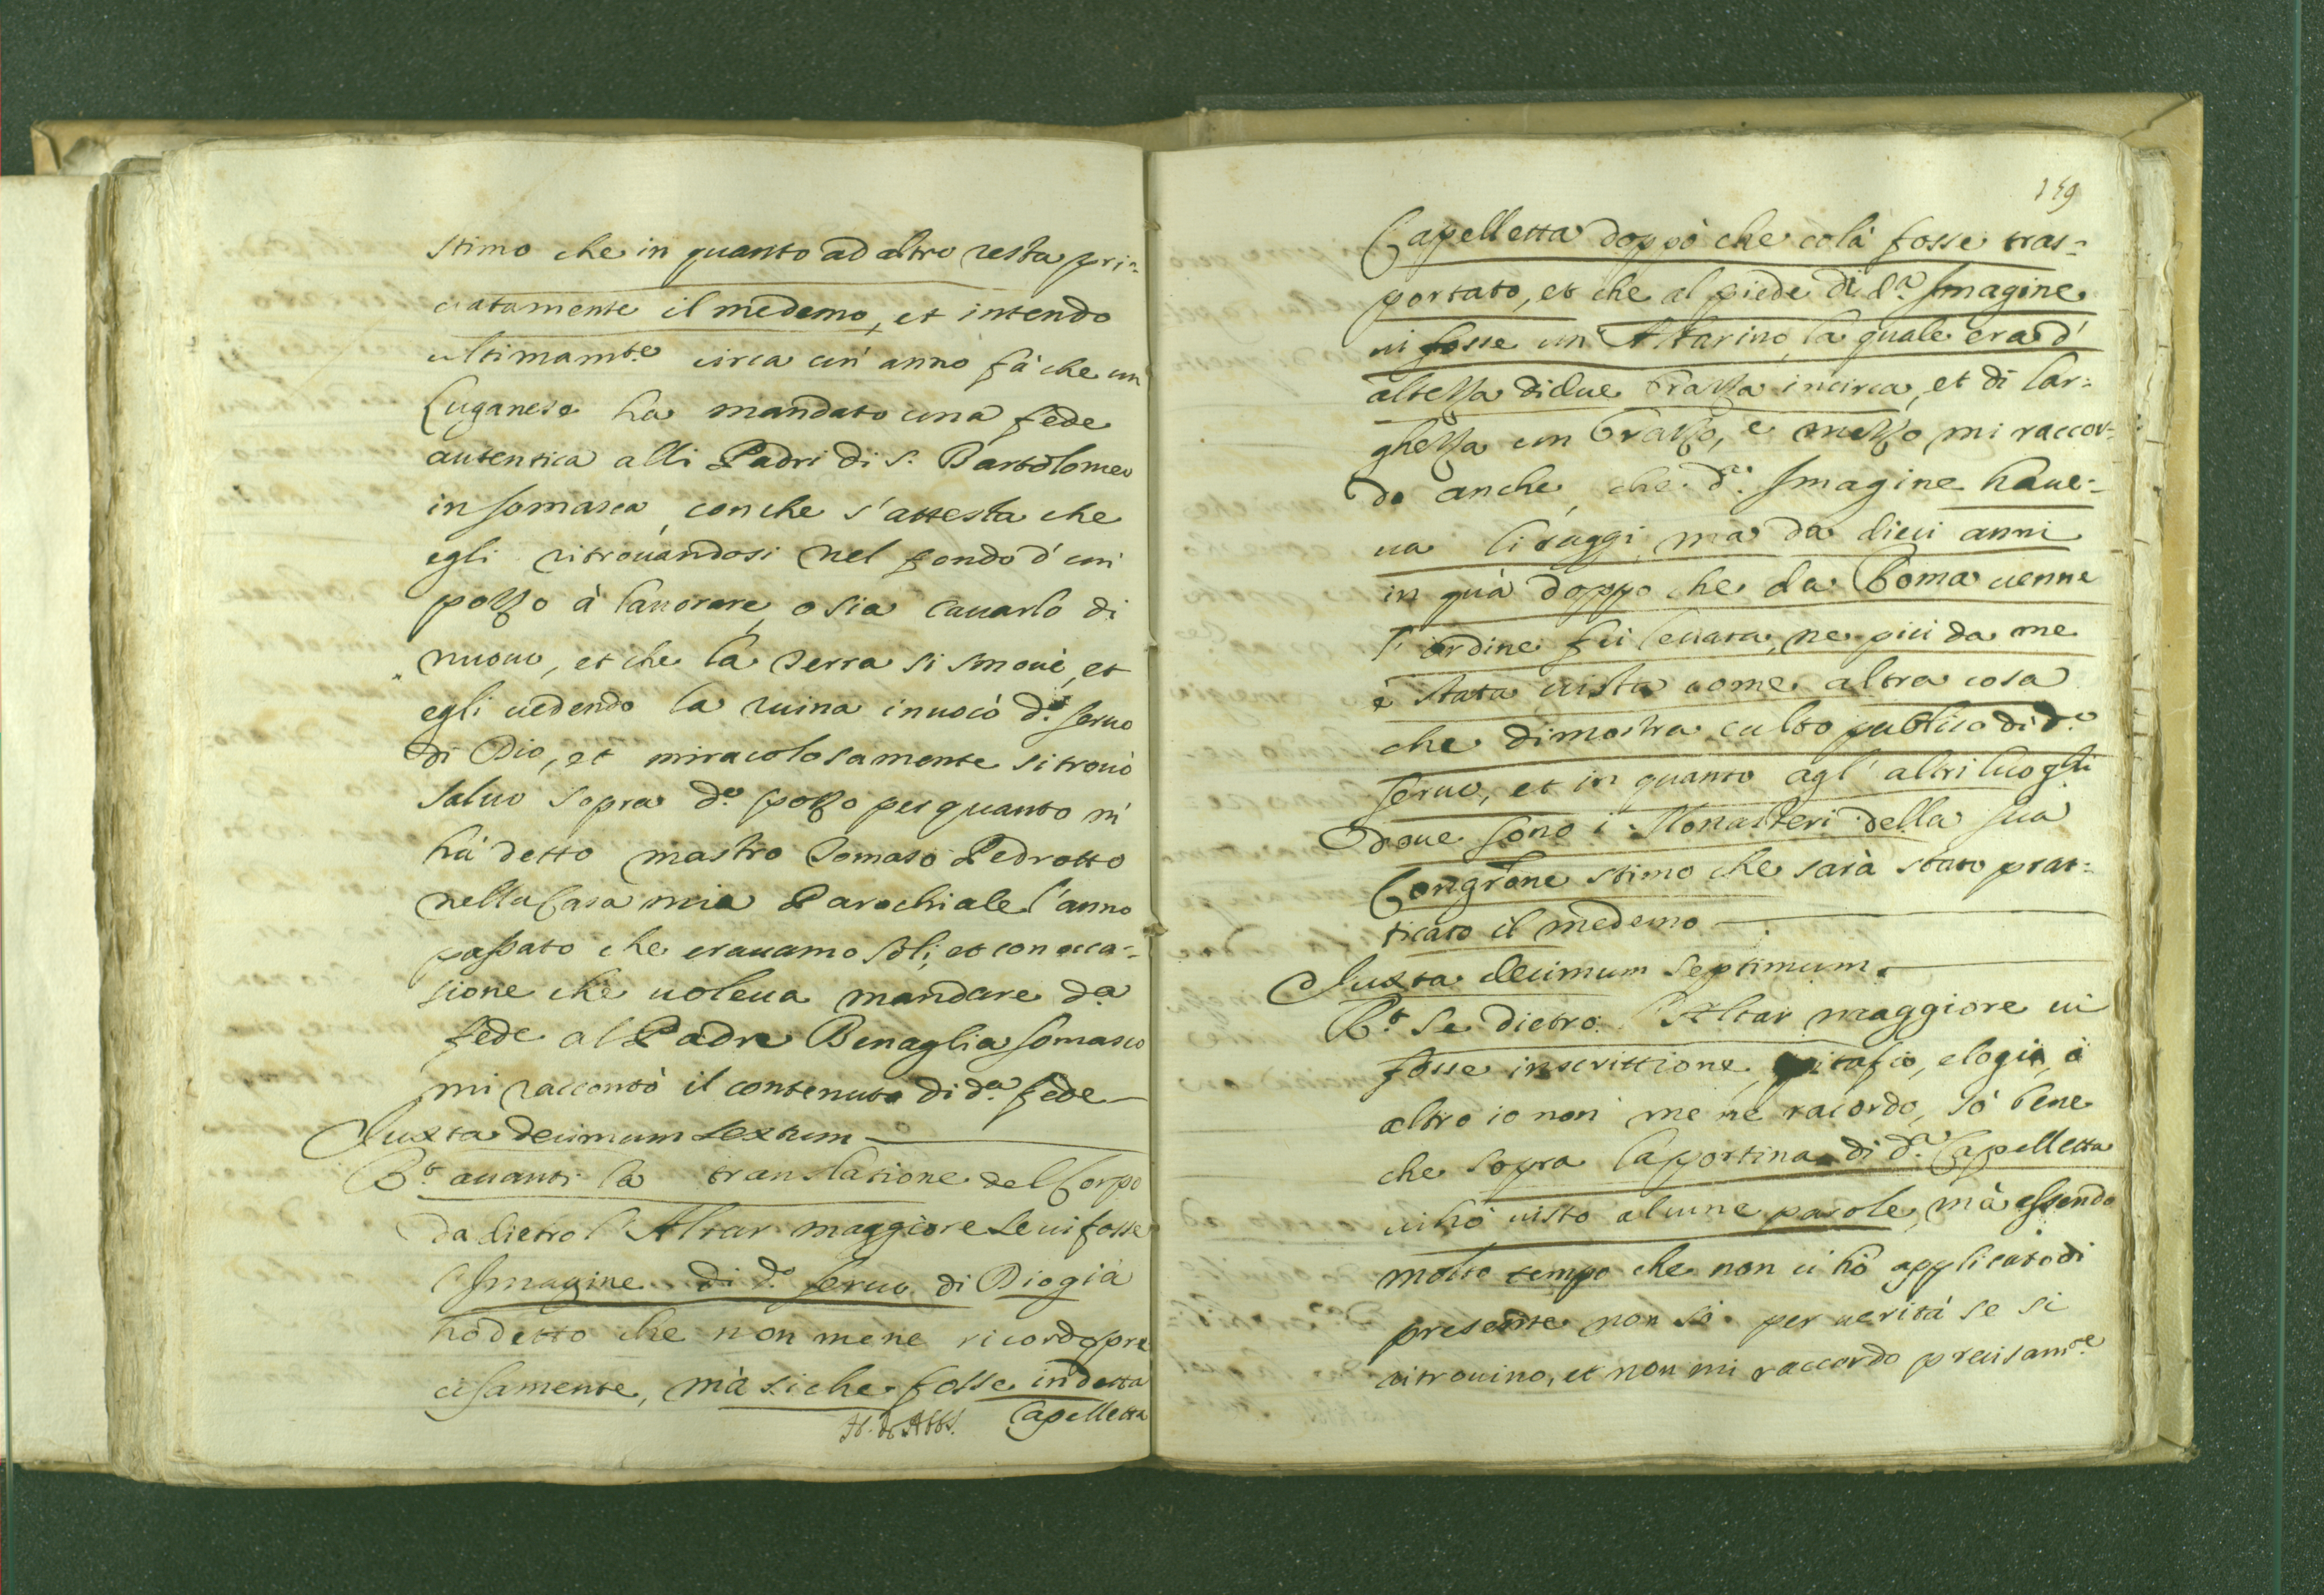 stimo che in quanto ad altro resta pri=
uatamente il medemo, et intendo
ultimam.te circa un' anno fà che un
Luganese ha mandato una fede
autentica alli Padri di S. Bartolomeo
in Somasca, con che s'attesta che
egli ritrouandosi nel fondo d'un
pozzo à lauorare, o sia cauarlo di
nuouo, et che la terra si smouè, et
egli uedendo la ruina inuocò d.o seruo
di Dio, et miracolosamente si trouò
saluo sopra d.o pozzo per quanto m'
hà detto mastro Tomaso Pedrotto
nella Casa mia Parochiale l'anno
passato che erauamo soli, et con occa=
sione che uoleua mandare d.a
fede al Padre Benaglia Somasco
mi raccontò il contenuto di d.a fede
Juxta decimum sextum
R.t auanti la translatione del Corpo
da dietro l'Altar maggiore se ui fosse
l'Imagine di d.o seruo di Dio già
hò detto che non me ne ricordo pre
cisamente, mà si che fosse in detta
Capelletta
159
Capelletta doppò che colà fosse tras=
portato, et che al piede di d.a Imagine
ui fosse un Altarino, la quale era d'
altezza di due brazza incirca, et di lar=
ghezza un brazzo, e mezzo mi raccor=
do anche, che d.a Imagine haue=
ua li raggi, ma da dieci anni
in quà doppo che da Roma uenne
l'ordine fu leuata, ne più da me
è stata uista come altra cosa
che dimostra culto publico di d.o
seruo, et in quanto agl'altri luoghi
doue sono i Monasteri della sua
Congr.one stimo che sarà stato prat=
ticato il medemo
Juxta decimum septimum
R.t Se dietro l'Altar maggiore ui
fosse inscrittione, epitafio, elogio, ò
altro io non me ne racordo, sò bene
che sopra la portina di d.a Capelletta
ui hò uisto alcune parole, mà essendo
molto tempo che non ci hò applicato di
presente non sò per uerità se si
ritrouino, et non mi raccordo precisam.te